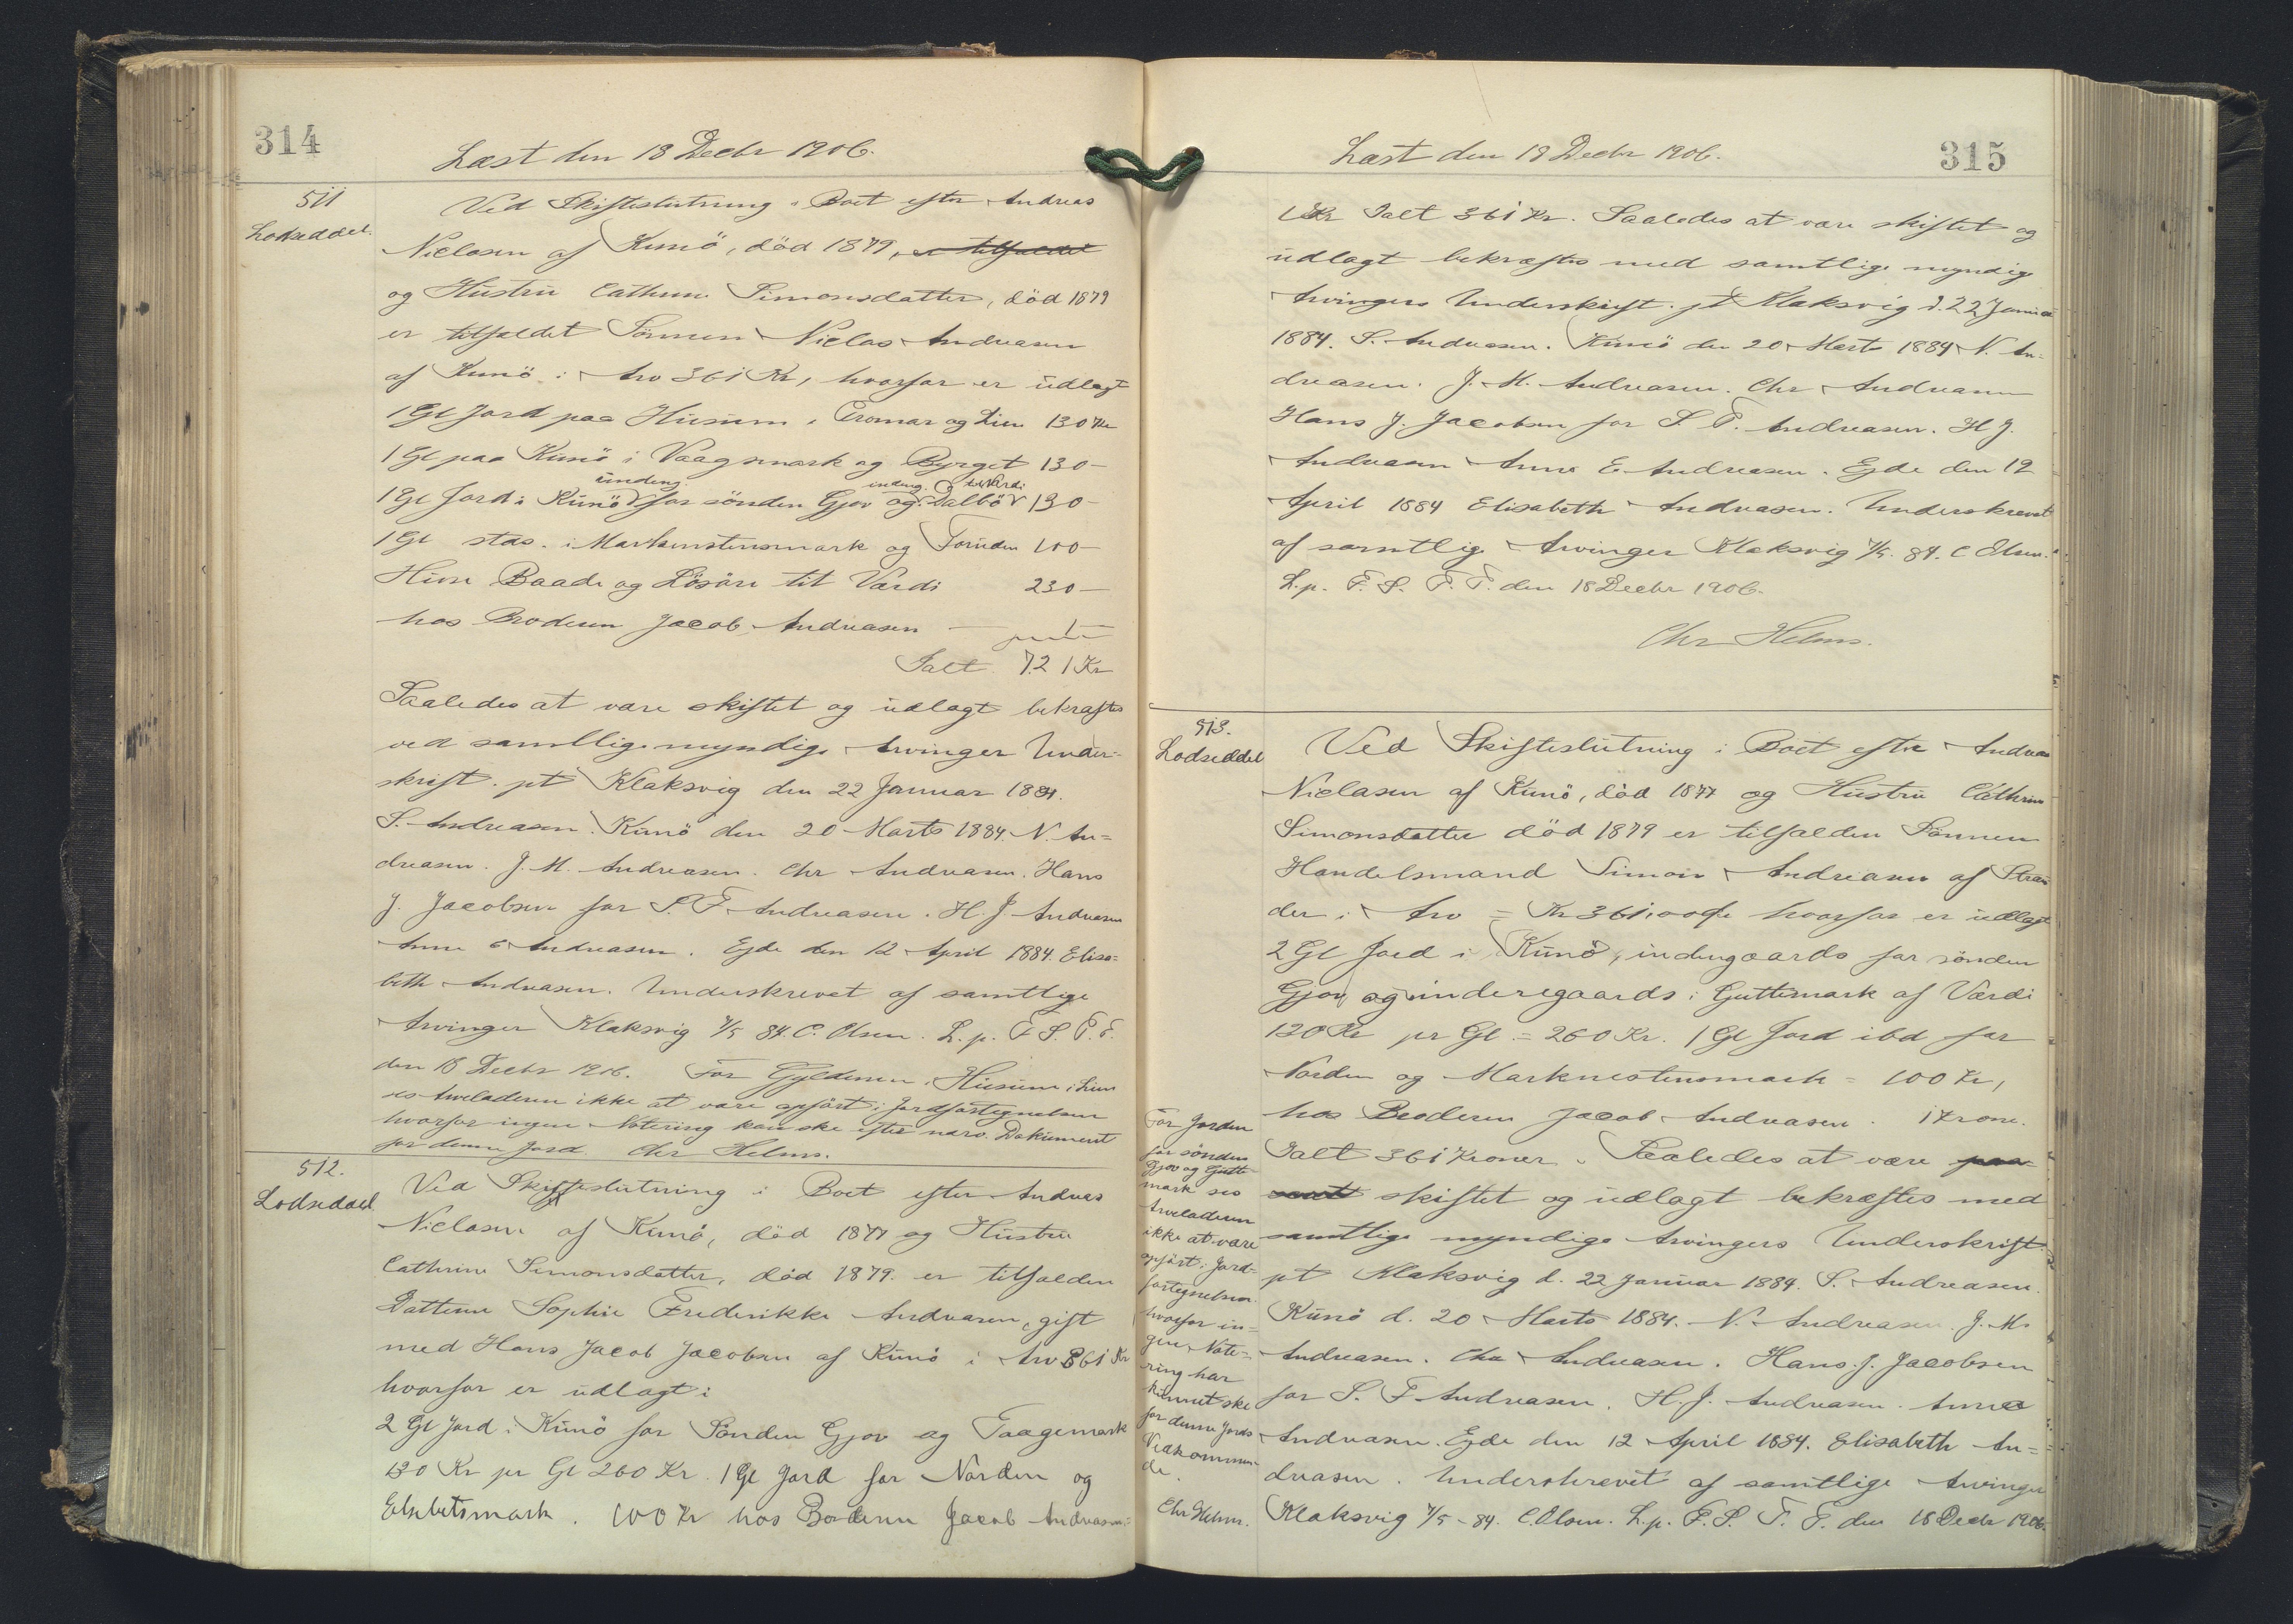 314
Læst den 18 Decbr 1906.
511
Lodseddel.
Ved Skifteslutning i Boet efter Andreas
Niclasen af Kunö, död 1879, er tilfaldet
og Hustru Cathrine Simonsdatter, död 1879
er tilfaldet Sönnen Niclas Andreasen
af Kunö i Arv 361 Kr, hvorfor er udlagt
1 Gl Jord paa Husum i Cromar og Lien 130 Kr
1 Gl paa Kunö i Vaagsmark og Byrget 130 –
indeng. indeng. til Værdi
1 Gl Jord i Kunö for sönden Gjov og Dalbö 130 –
1 Gl stds. i Markenstensmark og Foruden 100 –
Huse Baade og Lösöre til Værdi 230 –
hos Broderen Jacob Andreasen – 1 –
Ialt 721 Kr
Saaledes at være skiftet og udlagt bekræftes
ved samtlige myndige Arvinger Under-
skrift. pt Klaksvig den 22 Januar 1884.
S. Andreasen. Kunö den 20 Marts 1884. N. An=
dreasen. J. M. Andreasen. Chr Andreasen. Hans
J. Jacobsen for S. F. Andreasen. H. J. Andreasen
Anne E Andreasen. Ejde den 12 April 1884. Elisa=
beth Andreasen. Underskrevet af samtlige
Arvinger Klaksvig 7/5 84. C. Olsen. L. p. F. S. T. F.
den 18 Decbr 1906. For Gyldenen i Husum i Lien
ses Arveladeren ikke at være opfört i Jordfortegnelsen
hvorfor ingen Notering kan ske efter nærv. Dokument
for denne Jord. Chr Helms.
512.
Lodseddel
Ved Skifteslutning i Boet efter Andreas
Niclasen af Kunö, död 1877 og Hustru
Cathrine Simonsdatter, död 1879. er tilfalden
Datteren Sophie Frederikke Andreasen, gift
med Hans Jacob Jacobsen af Kunö i Arv 361 Kr
hvorfor er udlagt:
2 Gl Jord i Kunö for Sönden Gjov og Taagemark
130 Kr pr Gl 260 Kr. 1 Gl Jord for Norden og
Elsbetsmark. 100 Kr hos Broderen Jacob Andreasen=
315
Læst den 18 Decbr 1906.
1 Kr Ialt 361 Kr. Saaledes at være skiftet og
udlagt bekræftes med samtlige myndige
Arvingers Underskrift. pt Klaksvig d. 22 Januar
1884. S. Andreasen. Kunö den 20 Marts 1884 N. An=
dreasen. J. M. Andreasen. Chr Andreasen
Hans J. Jacobsen for S. F. Andreasen. H J.
Andreasen Anne E. Andreasen. Ejde den 12
April 1884 Elisabeth Andreasen. Underskrevet
af samtlige Arvinger Klaksvig 7/5. 84. C Olsen.
L. p. F. S. T. F. den 18 Decbr 1906.
Chr Helms.
513.
Lodseddel
Ved Skifteslutning i Boet efter Andreas
Niclasen af Kunö, död 1877 og Hustru Cathrine
Simonsdatter död 1879 er tilfalden Sönnen
Handelsmand Simon Andreasen af Stran
der i Arv = Kr 361,00 hvorfor er udlagt
2 Gl Jord i Kunö, indengaards for sönden
Gjov og inderegaards i Guttemark af Værdi
130 Kr pr Gl. = 260 Kr. 1 Gl Jord ibd for
Norden og Marknestensmark = 100 Kr,
hos Broderen Jacob Andreasen. 1 Krone.
Ialt 361 Kroner. Saaledes at være
skiftet og udlagt bekræftes med
samtlige myndige Arvingers Underskrift.
pt Klaksvig d. 22 Januar 1884. S. Andreasen.
Kunö d. 20 Marts 1884. N. Andreasen. J. M.
Andreasen. Chr Andreasen. Hans. J. Jacobsen
for S. F Andreasen. H. J. Andreasen. Anne
Andreasen. Ejde den 12 April 1884. Elisabeth An=
dreasen. Underskrevet af samtlige Arvinger
Klaksvig 7/5 – 84. C. Olsen. L. p. F. S. T. F. den 18 Decbr 1906.
For Jorden
for sönden
Gjov og Gutte
mark ses
Arveladeren
ikke at være
opfört i Jord=
fortegnelsen
hvorfor in=
gen Note=
ring har
kunnet ske
for denne Jords
Vedkommen-
de.
Chr Helms.